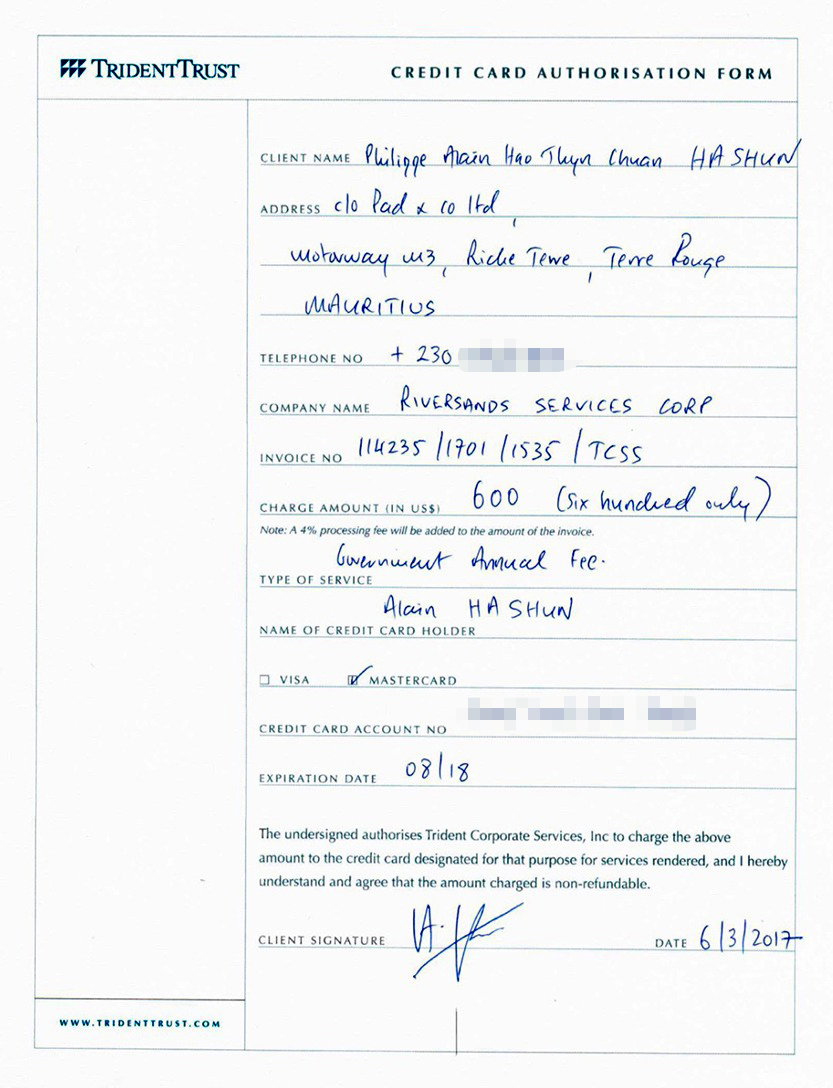 TRIDENTTRUST
CREDIT CARD AUTHORISATION FORM
CLIENT NAME Philippe Alain Hao Thyn Chuan HA SHUN
ADDRESS c/o Pad & co ltd,
Motorway M3, Riche Terre, Terre Rouge
MAURITIUS
TELEPHONE NO + 230
COMPANY NAME RIVERSANDS SERVICES CORP
INVOICE NO 114235/1701/1535/TCSS
CHARGE AMOUNT (IN US$) 600 (Six hundred only)
Note: A 4% processing fee will be added to the amount of the invoice.
Government Annual Fee.
TYPE OF SERVICE
Alain HA SHUN
NAME OF CREDIT CARD HOLDER
VISA MASTERCARD
CREDIT CARD ACCOUNT NO
EXPIRATION DATE 08/18
The undersigned authorises Trident Corporate Services, Inc to charge the above
amount to the credit card designated for that purpose for services rendered, and I hereby
understand and agree that the amount charged is non-refundable.
CLIENT SIGNATURE
DATE 6/3/2017
WWW.TRIDENTTRUST.COM